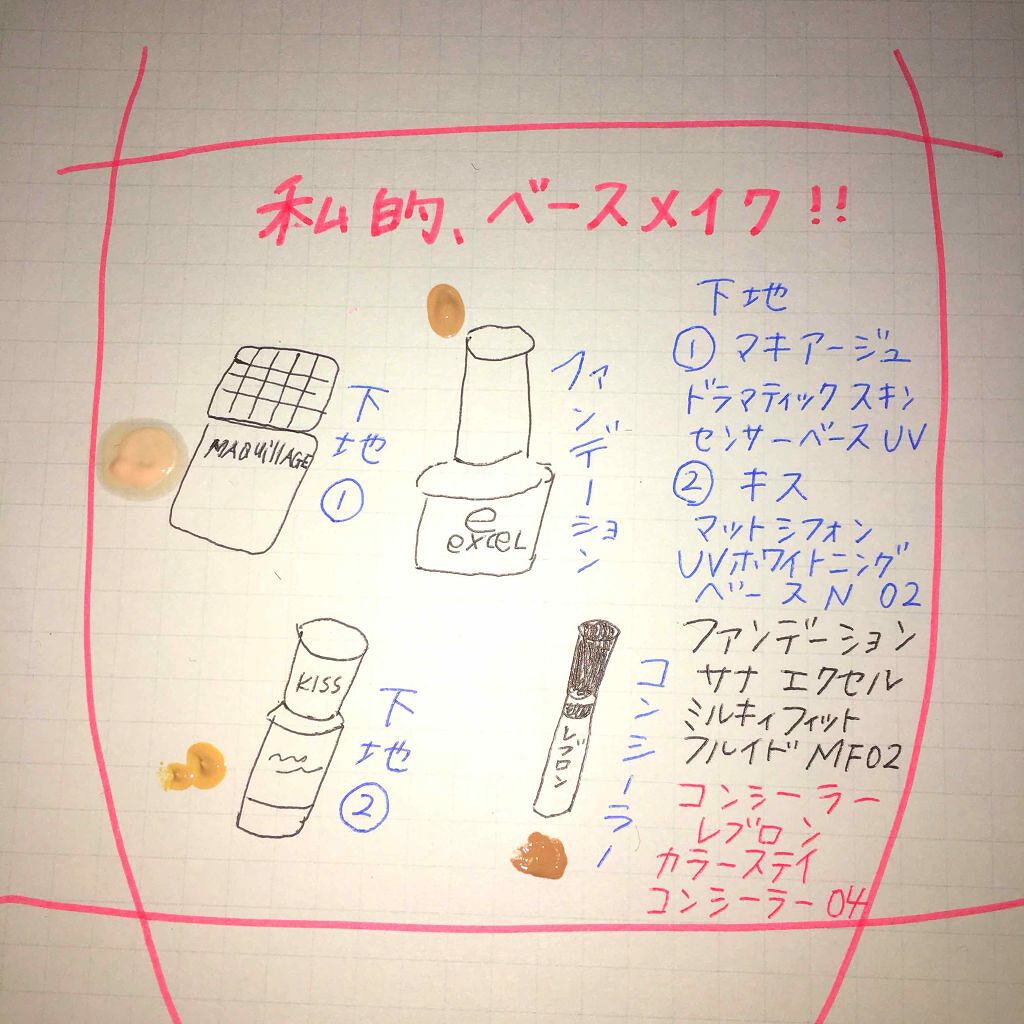 私的、ベースメイク!!
MAQUillAGE
下地
①
e
excel
ファンデーション
KISS
下地
②
レブロン
コンシーラー
下地
① マキアージュ
ドラマティックスキン
センサーベースUV
② キス
マットシフォン
UVホワイトニング
ベースN 02
ファンデーション
サナ エクセル
ミルキィフィット
フルイド MF02
コンシーラー
レブロン
カラーステイ
コンシーラー 04